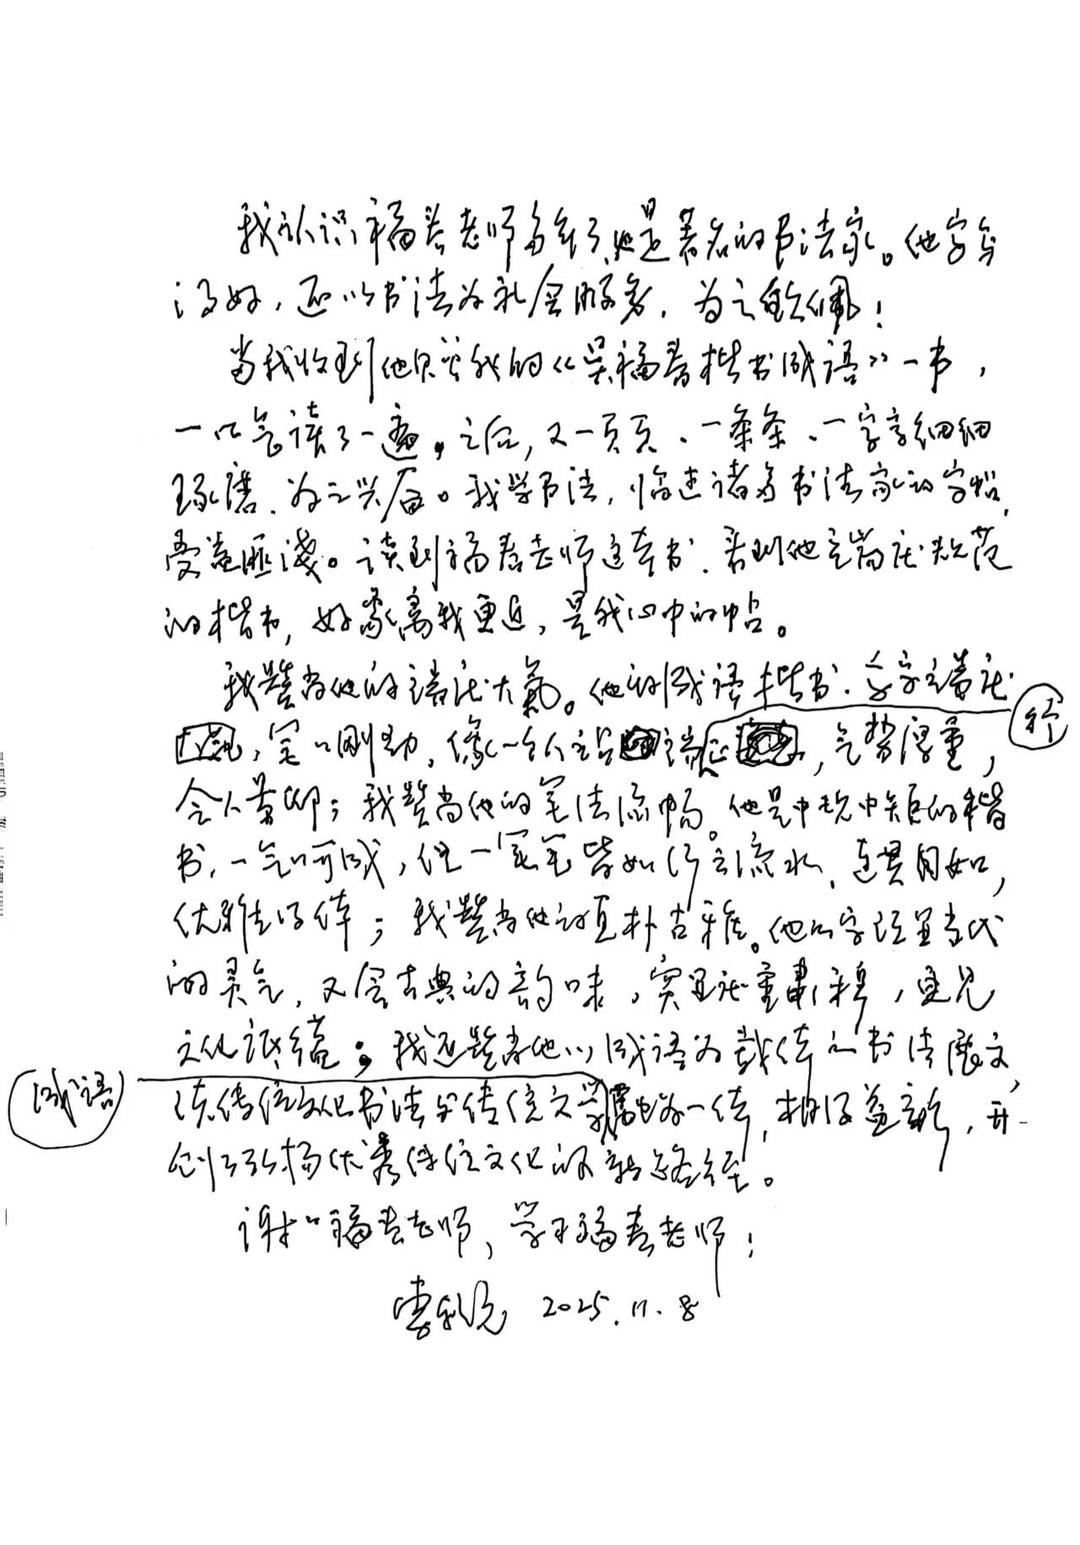 我认识福春老师多年了，他是著名的书法家。他字写
得好，还以书法为社会服务，为之钦佩！
当我收到他赠我的《吴福春楷书成语》一书，
一口气读了一遍。之后，又一页页、一条条、一字字细细
琢磨，为之兴奋。我学书法，临过诸多书法家的字帖，
受益匪浅。读到福春老师这本书，看到他端庄规范
的楷书，好象离我更近，是我心中的帖。
我赞赏他的端庄大气。他的成语楷书，字字端庄
笔力刚劲，像一个人站端正，气势厚重，
令人景仰；我赞赏他的笔法流畅。他是中规中矩的楷
书，一气呵成，但一笔笔皆如行云流水，连贯自如，
优雅得体；我赞赏他的直朴古雅。他的字既显当代
的灵气，又含古典的韵味，突显庄重肃穆，更见
文化底蕴；我还赞赏他以成语为载体的书法展文，
成语
传统文化书法与传统文学融为一体，相得益彰，开
创了弘扬优秀传统文化的新路径。
谢谢福春老师，学习福春老师！
2025.11.8